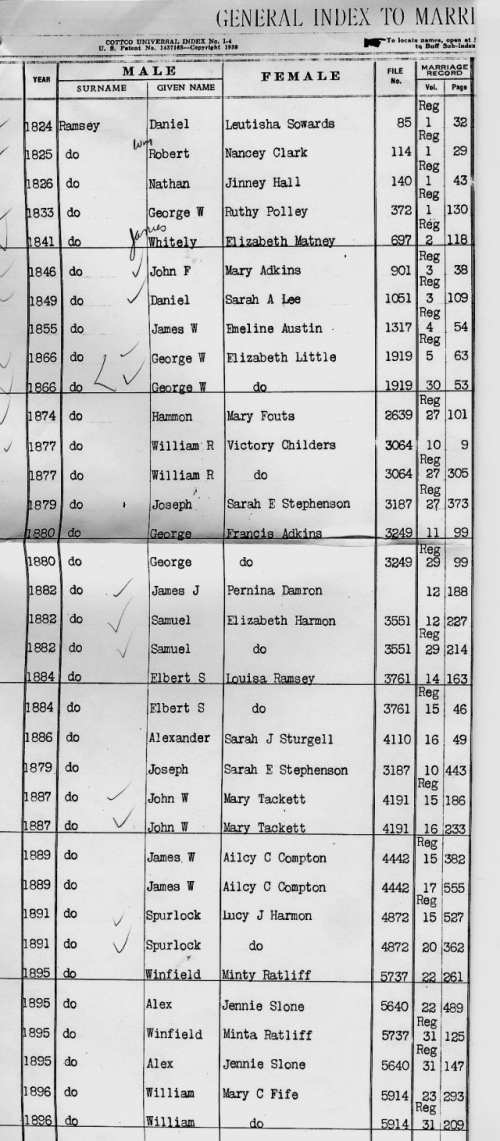 GENERAL INDEX TO MARRI
COTTCO UNIVERSAL INDEX No. 1-4
U. S. Patent No. 1437185—Copyright 1938
To locate names, open at
to Buff Sub-Index
YEAR MALE FEMALE FILE No. MARRIAGE RECORD
SURNAME GIVEN NAME Vol. Page
Reg
1824 Ramsey Daniel Leutisha Sowards 85 1 32
Wm Reg
1825 do Robert Nancey Clark 114 1 29
Reg
1826 do Nathan Jinney Hall 140 1 43
Reg
1833 do George W Ruthy Polley 372 1 130
James Reg
1841 do Whitely Elizabeth Matney 697 2 118
Reg
1846 do John F Mary Adkins 901 3 38
Reg
1849 do Daniel Sarah A Lee 1051 3 109
Reg
1855 do James W Emeline Austin 1317 4 54
Reg
1866 do George W Elizabeth Little 1919 5 63
1866 do George W do 1919 30 53
Reg
1874 do Hammon Mary Fouts 2639 27 101
1877 do William R Victory Childers 3064 10 9
Reg
1877 do William R do 3064 27 305
Reg
1879 do Joseph Sarah E Stephenson 3187 27 373
1880 do George Francis Adkins 3249 11 99
Reg
1880 do George do 3249 29 99
1882 do James J Pernina Damron 12 188
1882 do Samuel Elizabeth Harmon 3551 12 227
Reg
1882 do Samuel do 3551 29 214
1884 do Elbert S Louisa Ramsey 3761 14 163
Reg
1884 do Elbert S do 3761 15 46
1886 do Alexander Sarah J Sturgell 4110 16 49
1879 do Joseph Sarah E Stephenson 3187 10 443
Reg
1887 do John W Mary Tackett 4191 15 186
1887 do John W Mary Tackett 4191 16 233
Reg
1889 do James W Ailcy C Compton 4442 15 382
1889 do James W Ailcy C Compton 4442 17 555
Reg
1891 do Spurlock Lucy J Harmon 4872 15 527
1891 do Spurlock do 4872 20 362
1895 do Winfield Minty Ratliff 5737 22 261
1895 do Alex Jennie Slone 5640 22 489
Reg
1895 do Winfield Minta Ratliff 5737 31 125
Reg
1895 do Alex Jennie Slone 5640 31 147
1896 do William Mary C Fife 5914 23 293
Reg
1896 do William do 5914 31 209